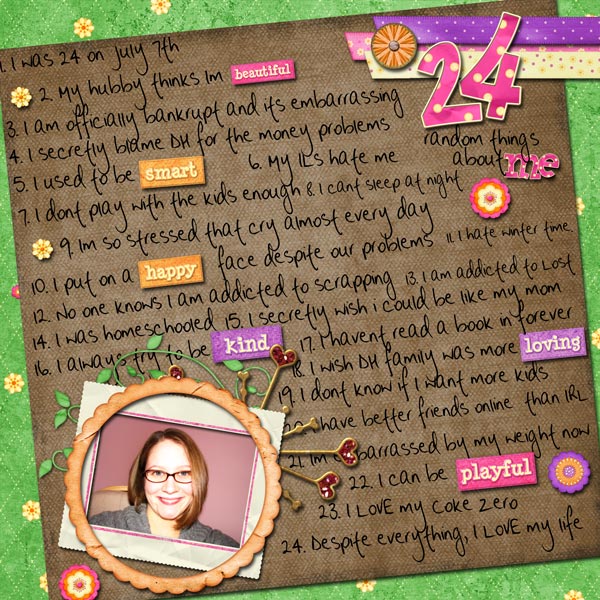 24
random things
about me
1. I was 24 on July 7th
2. My hubby thinks Im beautiful
3. I am officially bankrupt and its embarrassing
4. I secretly blame DH for the money problems
5. I used to be smart 6. My ILs hate me
7. I dont play with the kids enough 8. I cant sleep at night
9. Im so stressed that cry almost every day
10. I put on a happy face despite our problems 11. I hate winter time.
12. No one knows I am addicted to scrapping 13. I am addicted to Lost
14. I was homeschooled 15. I secretly wish i could be like my mom
16. I always try to be kind 17. I havent read a book in forever
18. I wish DH family was more loving
19. I dont know if I want more kids
have better friends online than IRL
21. Im barrassed by my weight now
22. I can be playful
23. I LOVE my Coke Zero
24. Despite everything, I LOVE my life